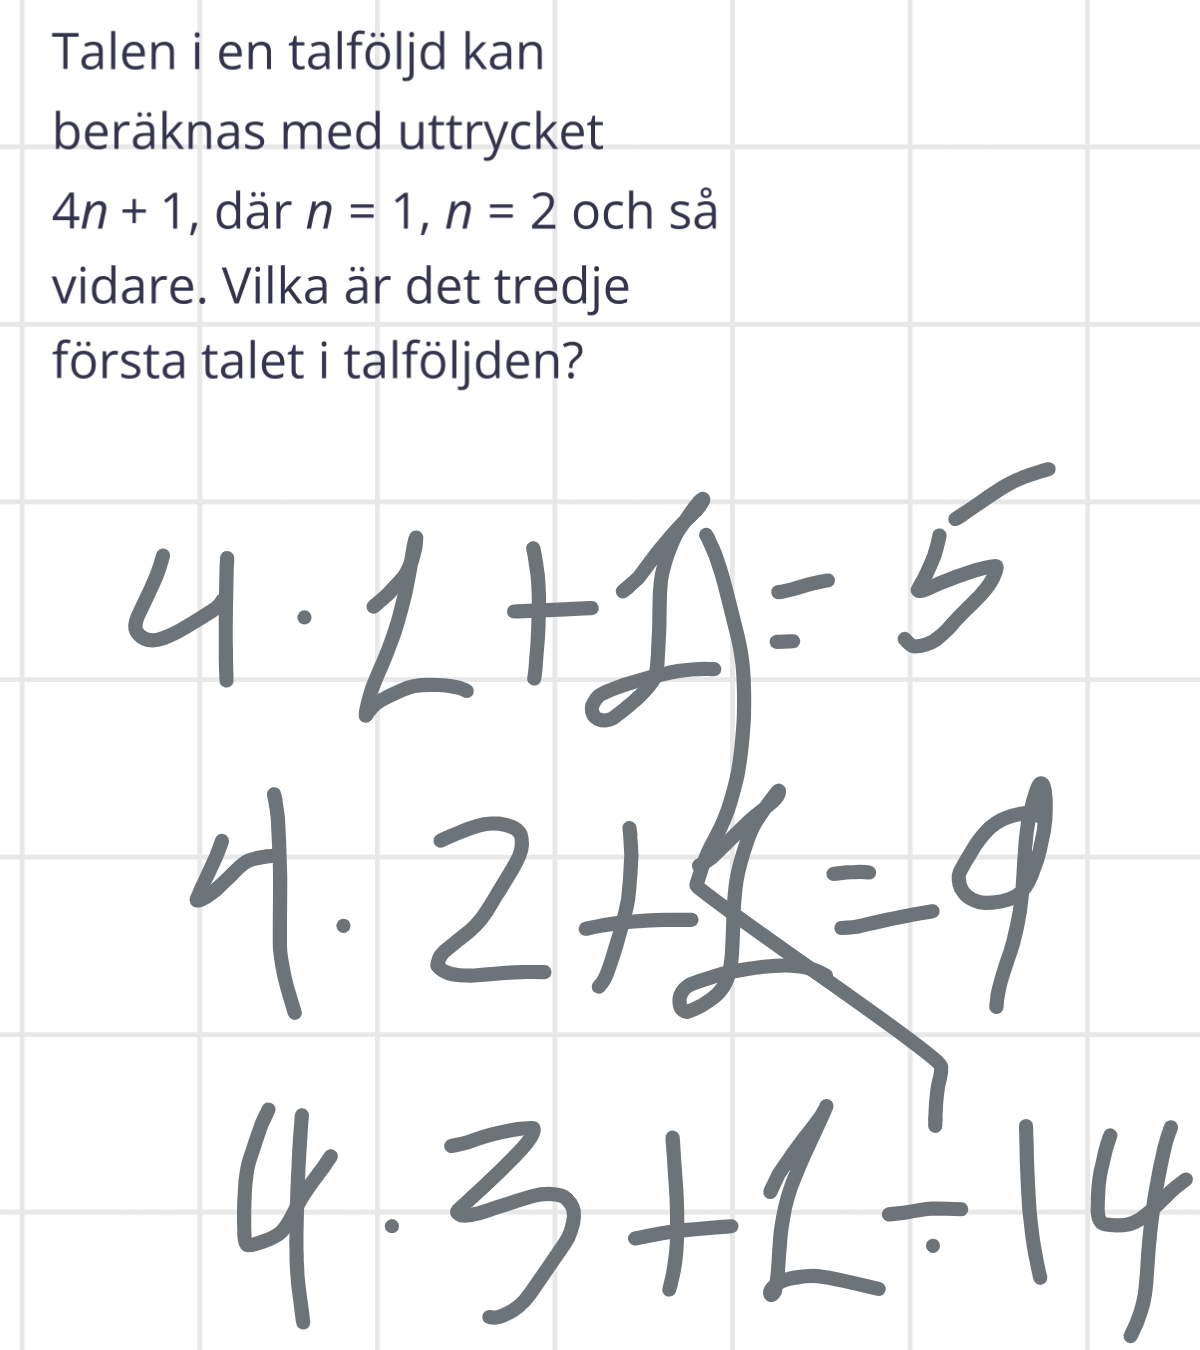 Talen i en talföljd kan
beräknas med uttrycket
4n + 1, där n = 1, n = 2 och så
vidare. Vilka är det tredje
första talet i talföljden?
4 · 1 + 1 = 5
4 · 2 + 1 = 9
4 · 3 + 1 = 14